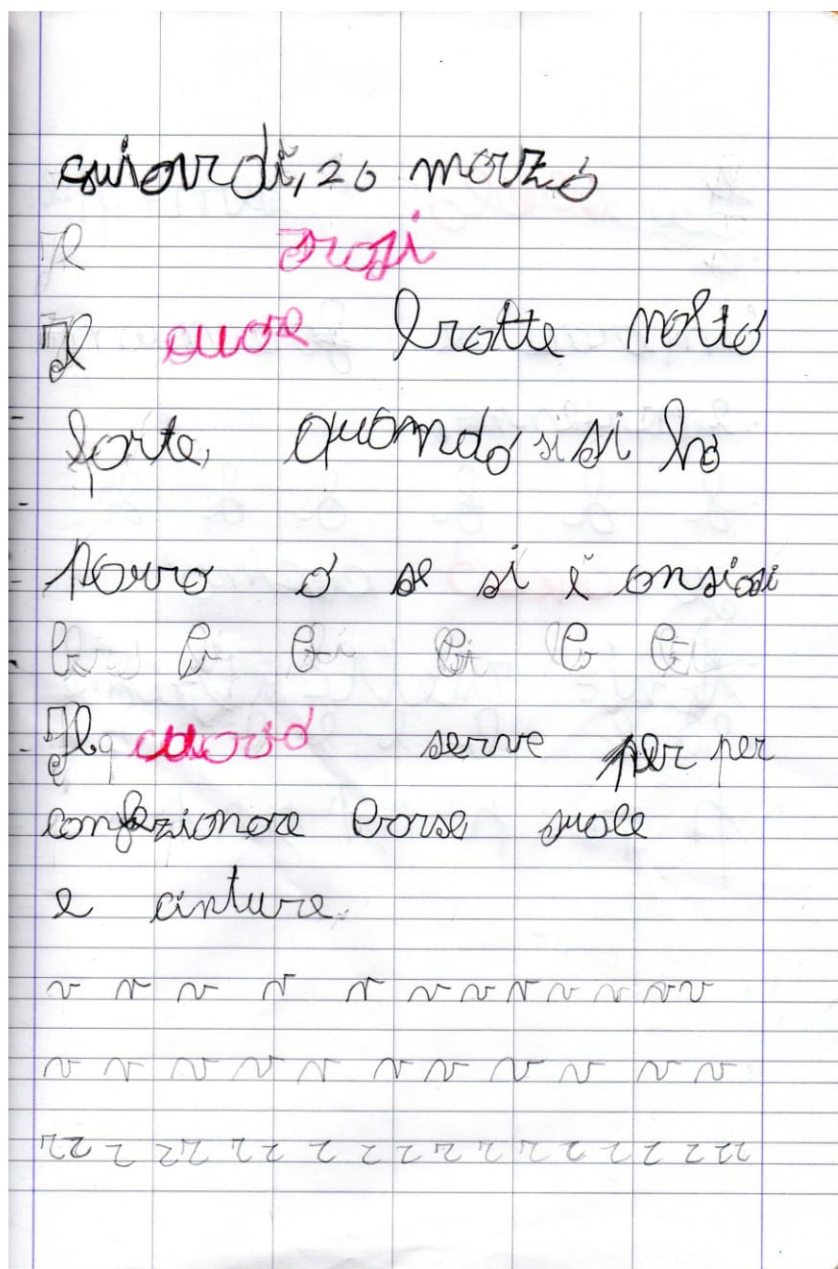 giovedì, 20 marzo
Il frasi
Il cuore batte molto
forte, quando si si ha
paura o se si è ansiosi
Il cuoio serve per per
confezionare borse, suole
e cinture.
v v v v v v v v v v v v
v v v v v v v v v v v